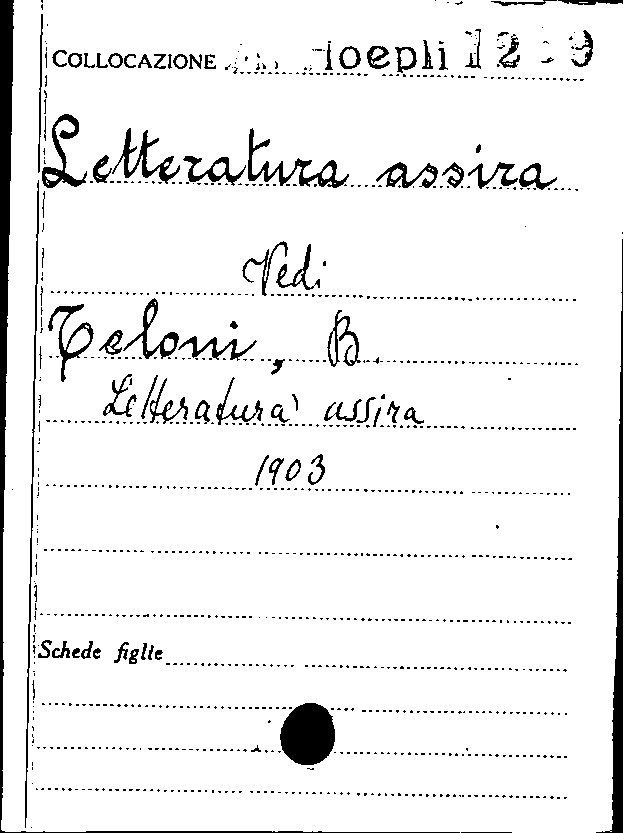 COLLOCAZIONE Hoepli
Letteratura assira
Vedi
Teloni, B.
Letteratura assira
1903
Schede figlie